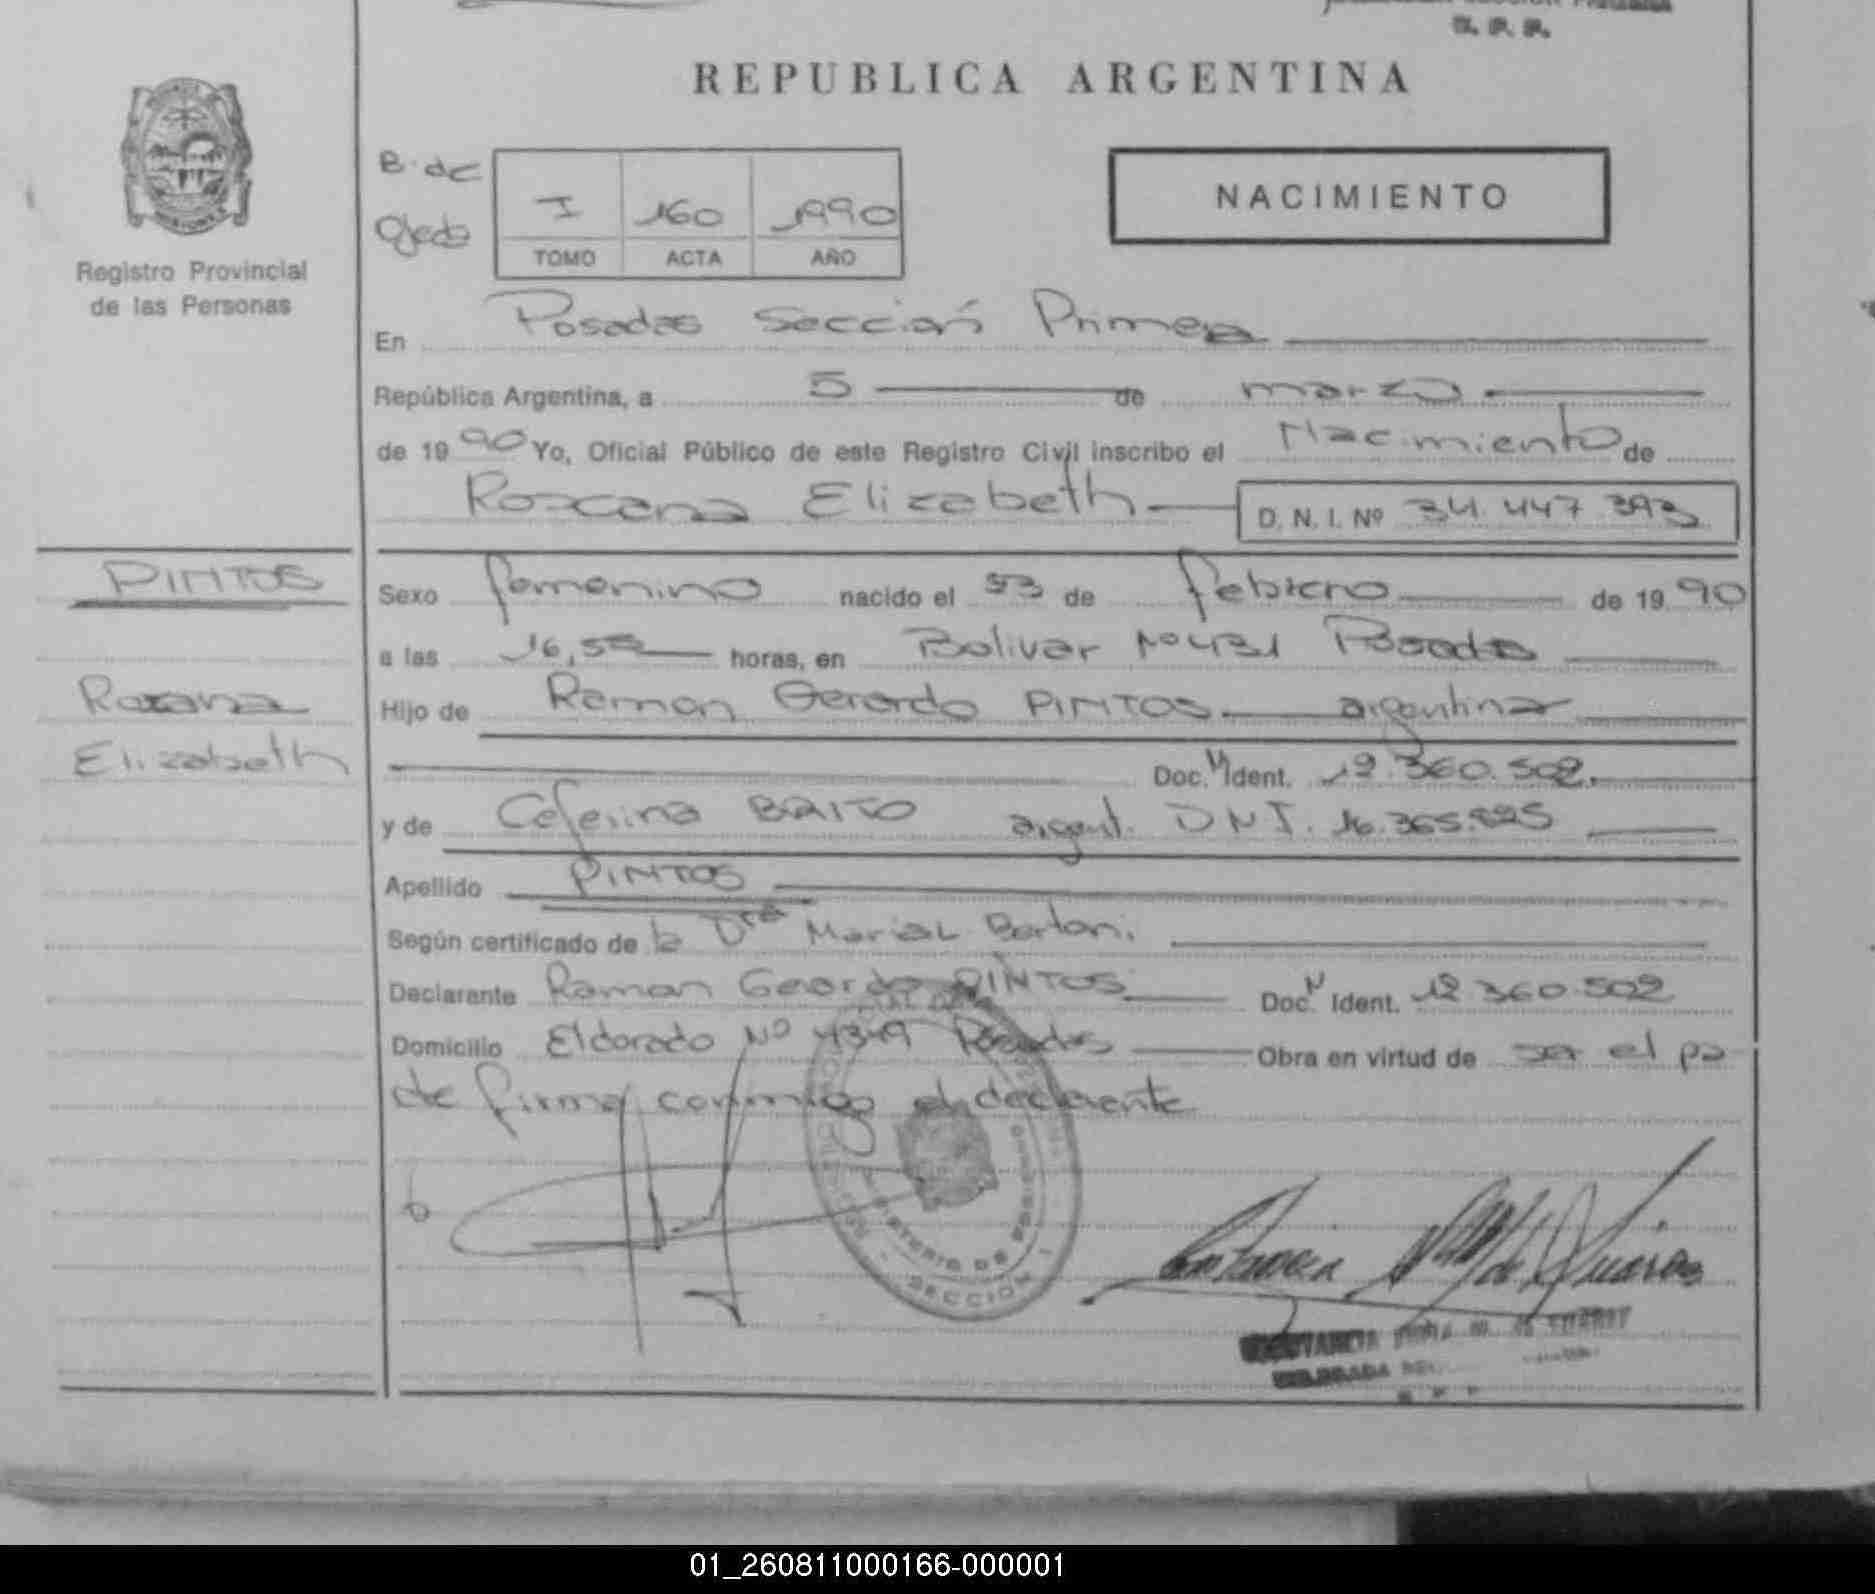 S. P. R.
REPUBLICA ARGENTINA
B. de
Ojeda
I 160 1990
TOMO ACTA AÑO
NACIMIENTO
MISIONES
Registro Provincial
de las Personas
En Posadas Sección Primera
República Argentina, a 5 de marzo
de 1990 Yo, Oficial Público de este Registro Civil inscribo el Nacimiento de
Roxana Elizabeth D. N. I. Nº 34.447.393
PINTOS
Roxana
Elizabeth
Sexo femenino nacido el de febrero de 1990
a las horas, en Bolivar Nº 431 Posadas
Hijo de Ramon Gerardo PINTOS argentina
Doc. N Ident. 12.360.502.
y de Ceferina BRITO argent. DNI. 16.365.
Apellido PINTOS
Según certificado de la Dra Maria L. Bertoni.
Declarante Ramon Gerardo PINTOS Doc. N Ident. 12.360.502
Domicilio Eldorado Nº 4349 Posadas Obra en virtud de ser el pa
dre firma conmigo el declarante
MINISTERIO DE
SECCION
01_260811000166-000001